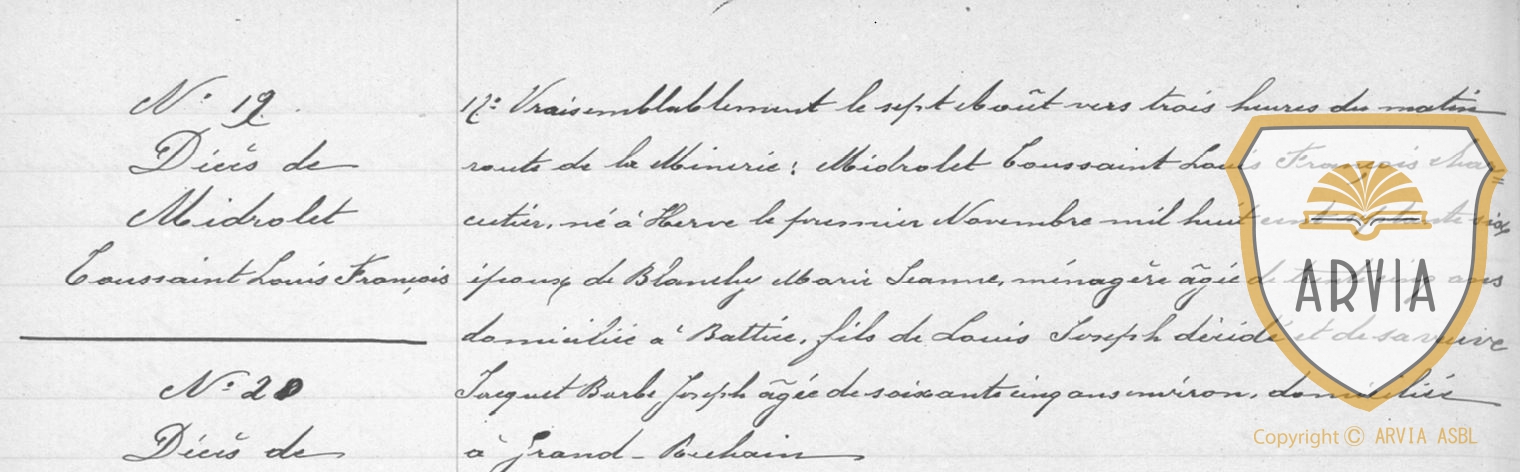 N° 19
Décès de
Midrolet
Toussaint Louis François
N° 20
Décès de
19° Vraisemblablement le sept Août vers trois heures du matin
route de la Minerie : Midrolet Toussaint Louis François char=
cutier, né à Herve le premier Novembre mil huit cent septante six
époux de Blanchy Marie Jeanne, ménagère âgée de trente cinq ans
domiciliée à Battice, fils de Louis Joseph décédé et de sa veuve
Jacquet Barbe Joseph âgée de soixante cinq ans environ, domiciliée
à Grand-Rechain
ARVIA
Copyright © ARVIA ASBL